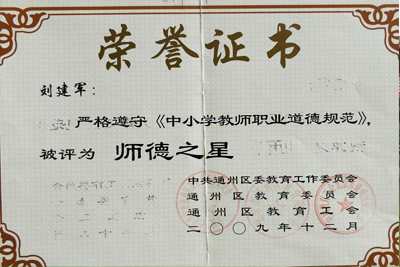 荣誉证书
刘建军：
严格遵守《中小学教师职业道德规范》，
被评为 师德之星
中共通州区委教育工作委员会
通州区教育委员会
通州区教育工会
二〇〇九年十二月